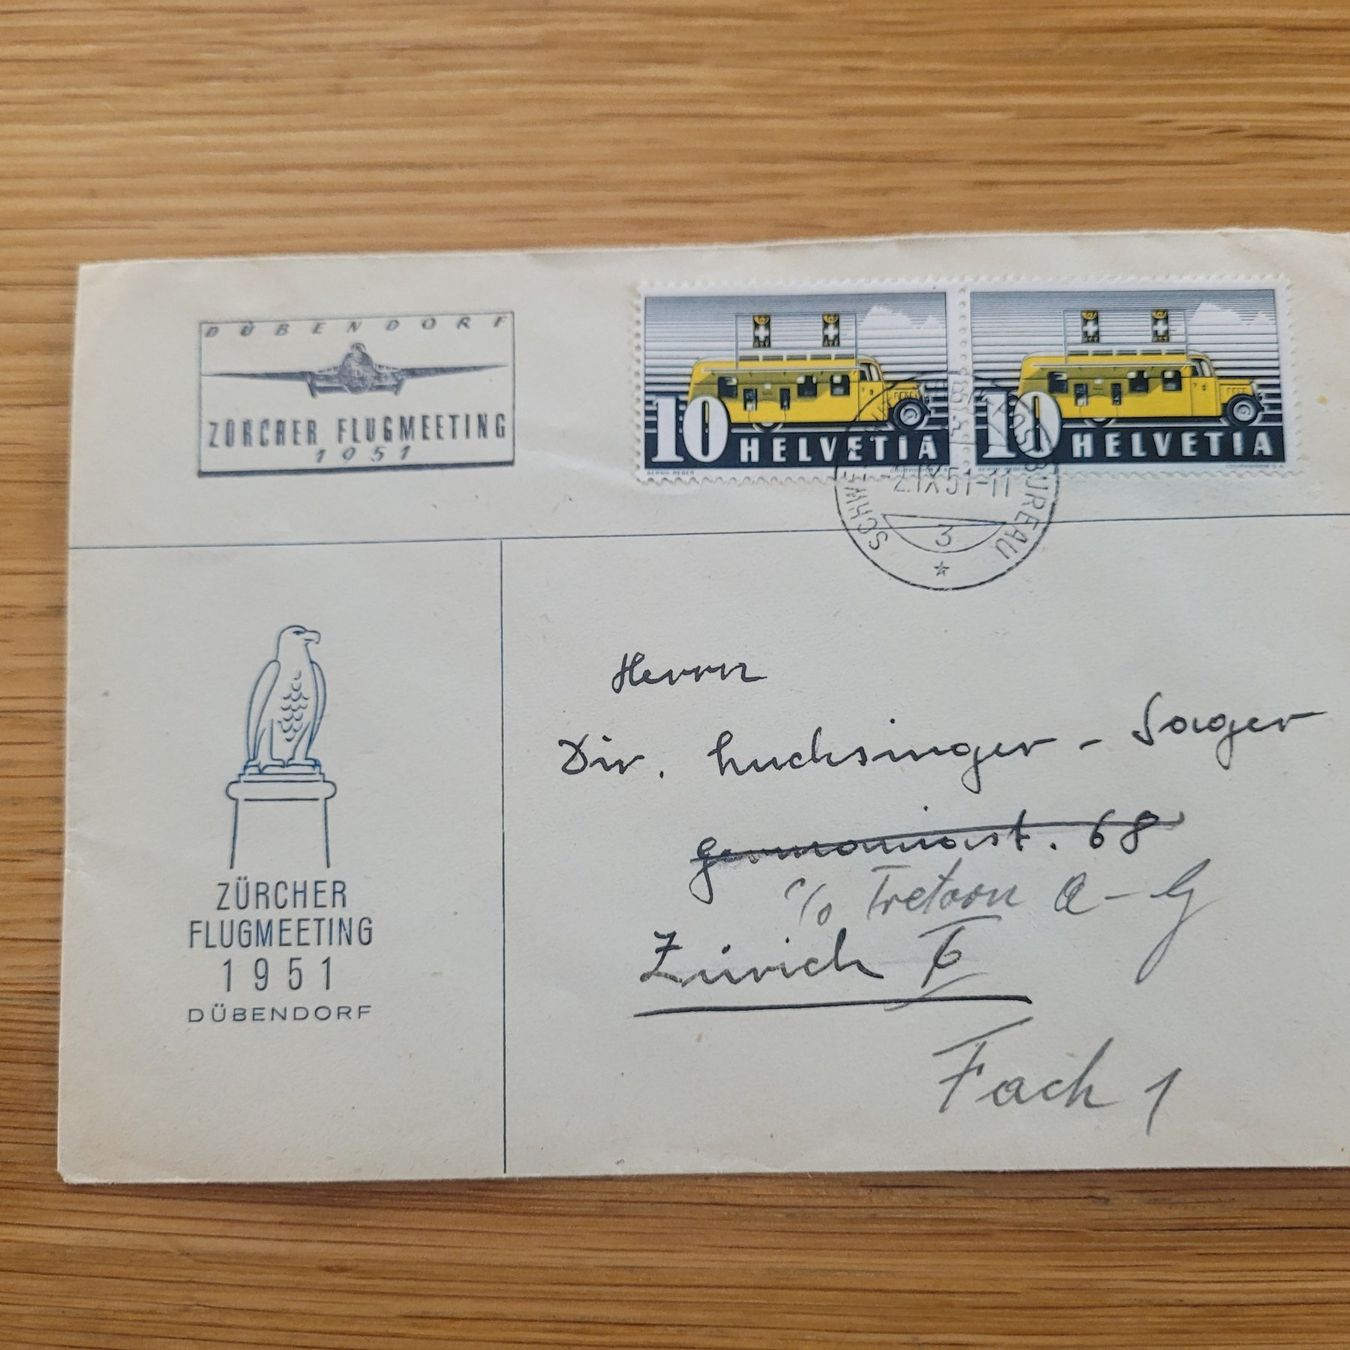 DÜBENDORF
ZÜRCHER FLUGMEETING
1951
10 HELVETIA
10 HELVETIA
SCHWEIZ. POSTBUREAU
-2.IX.51-11
3
ZÜRCHER
FLUGMEETING
1951
DÜBENDORF
Herrn
Dir. Luchsinger - Sauger
Germaniast. 68
c/o Tretorn A-G
Zürich 6
Fach 1